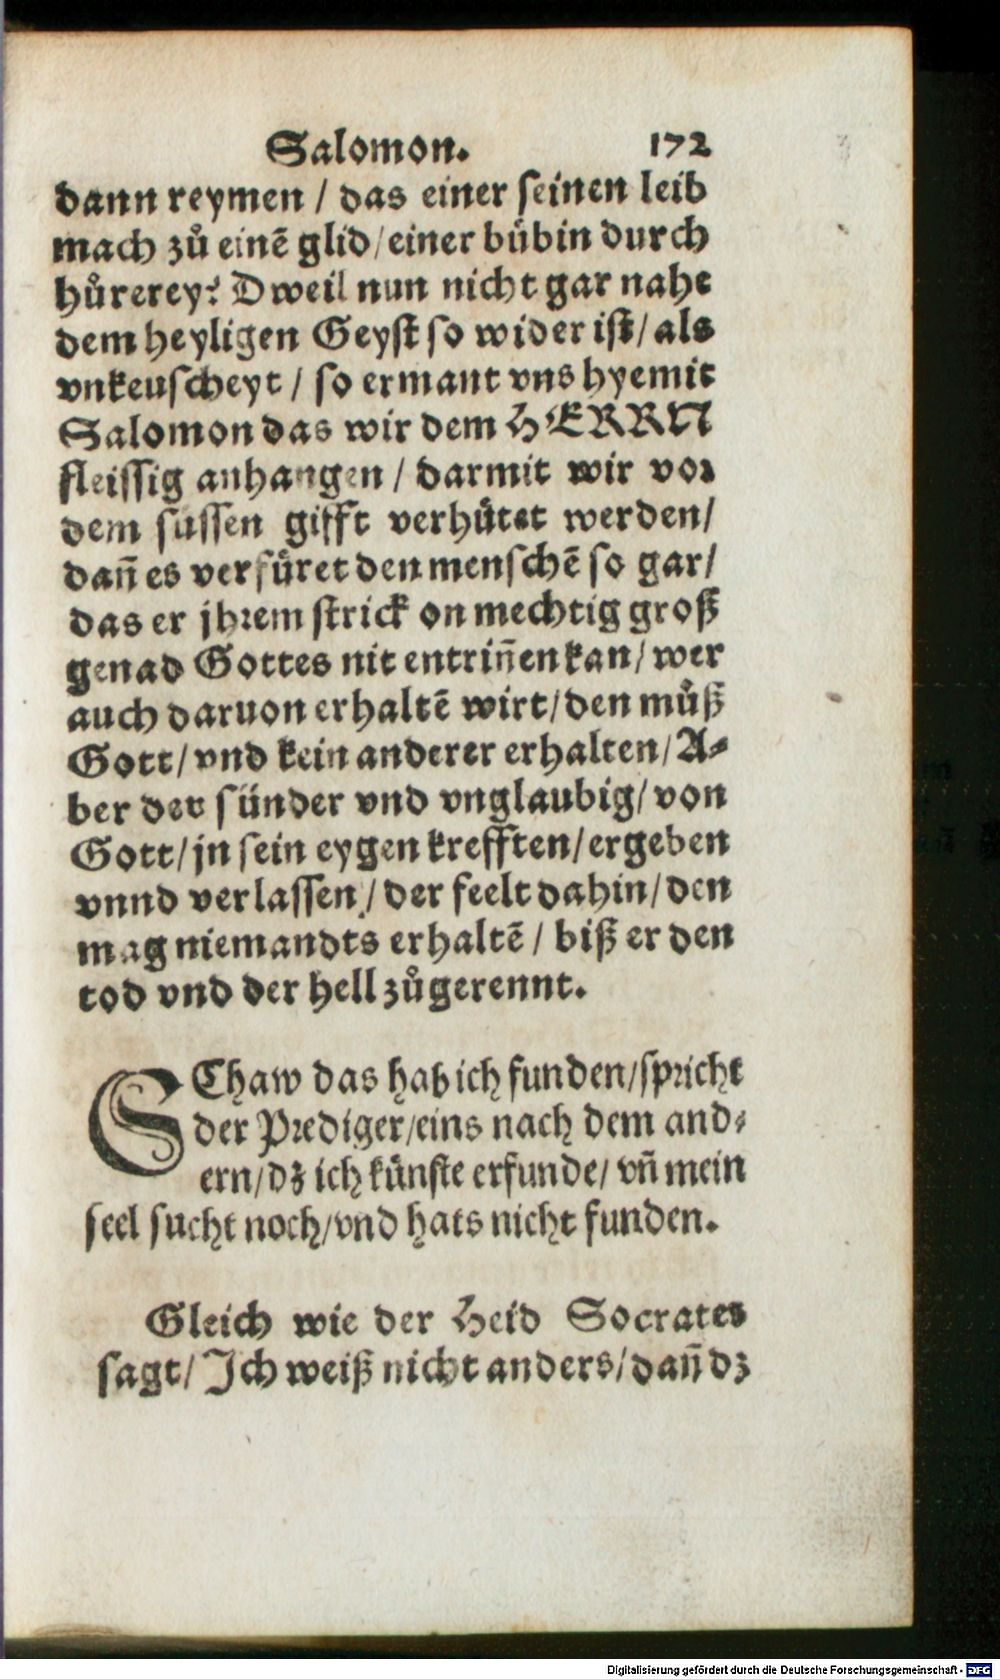 Salomon. 172
dann reymen / das einer seinen leib
mach zů einē glid / einer bübin durch
hůrerey? Dweil nun nicht gar nahe
dem heyligen Geyst so wider ist / als
vnkeuscheyt / so ermant vns hyemit
Salomon das wir dem HERRN
fleissig anhangen / darmit wir vor
dem süssen gifft verhütet werden /
dañ es verfüret den menschē so gar /
das er jhrem strick on mechtig groß
genad Gottes nit entriñen kan / wer
auch daruon erhaltē wirt / den můß
Gott / vnd kein anderer erhalten / A⸗
ber der sünder vnd vnglaubig / von
Gott / jn sein eygen krefften / ergeben
vnnd verlassen / der feelt dahin / den
mag niemandts erhaltē / biß er den
tod vnd der hell zůgerennt.
SChaw das hab ich funden / spricht
der Prediger / eins nach dem and⸗
ern / dz ich künste erfunde / vñ mein
seel sucht noch / vnd hats nicht funden.
Gleich wie der Heid Socrates
sagt / Ich weiß nicht anders / dañ dz
Digitalisierung gefördert durch die Deutsche Forschungsgemeinschaft - DFG